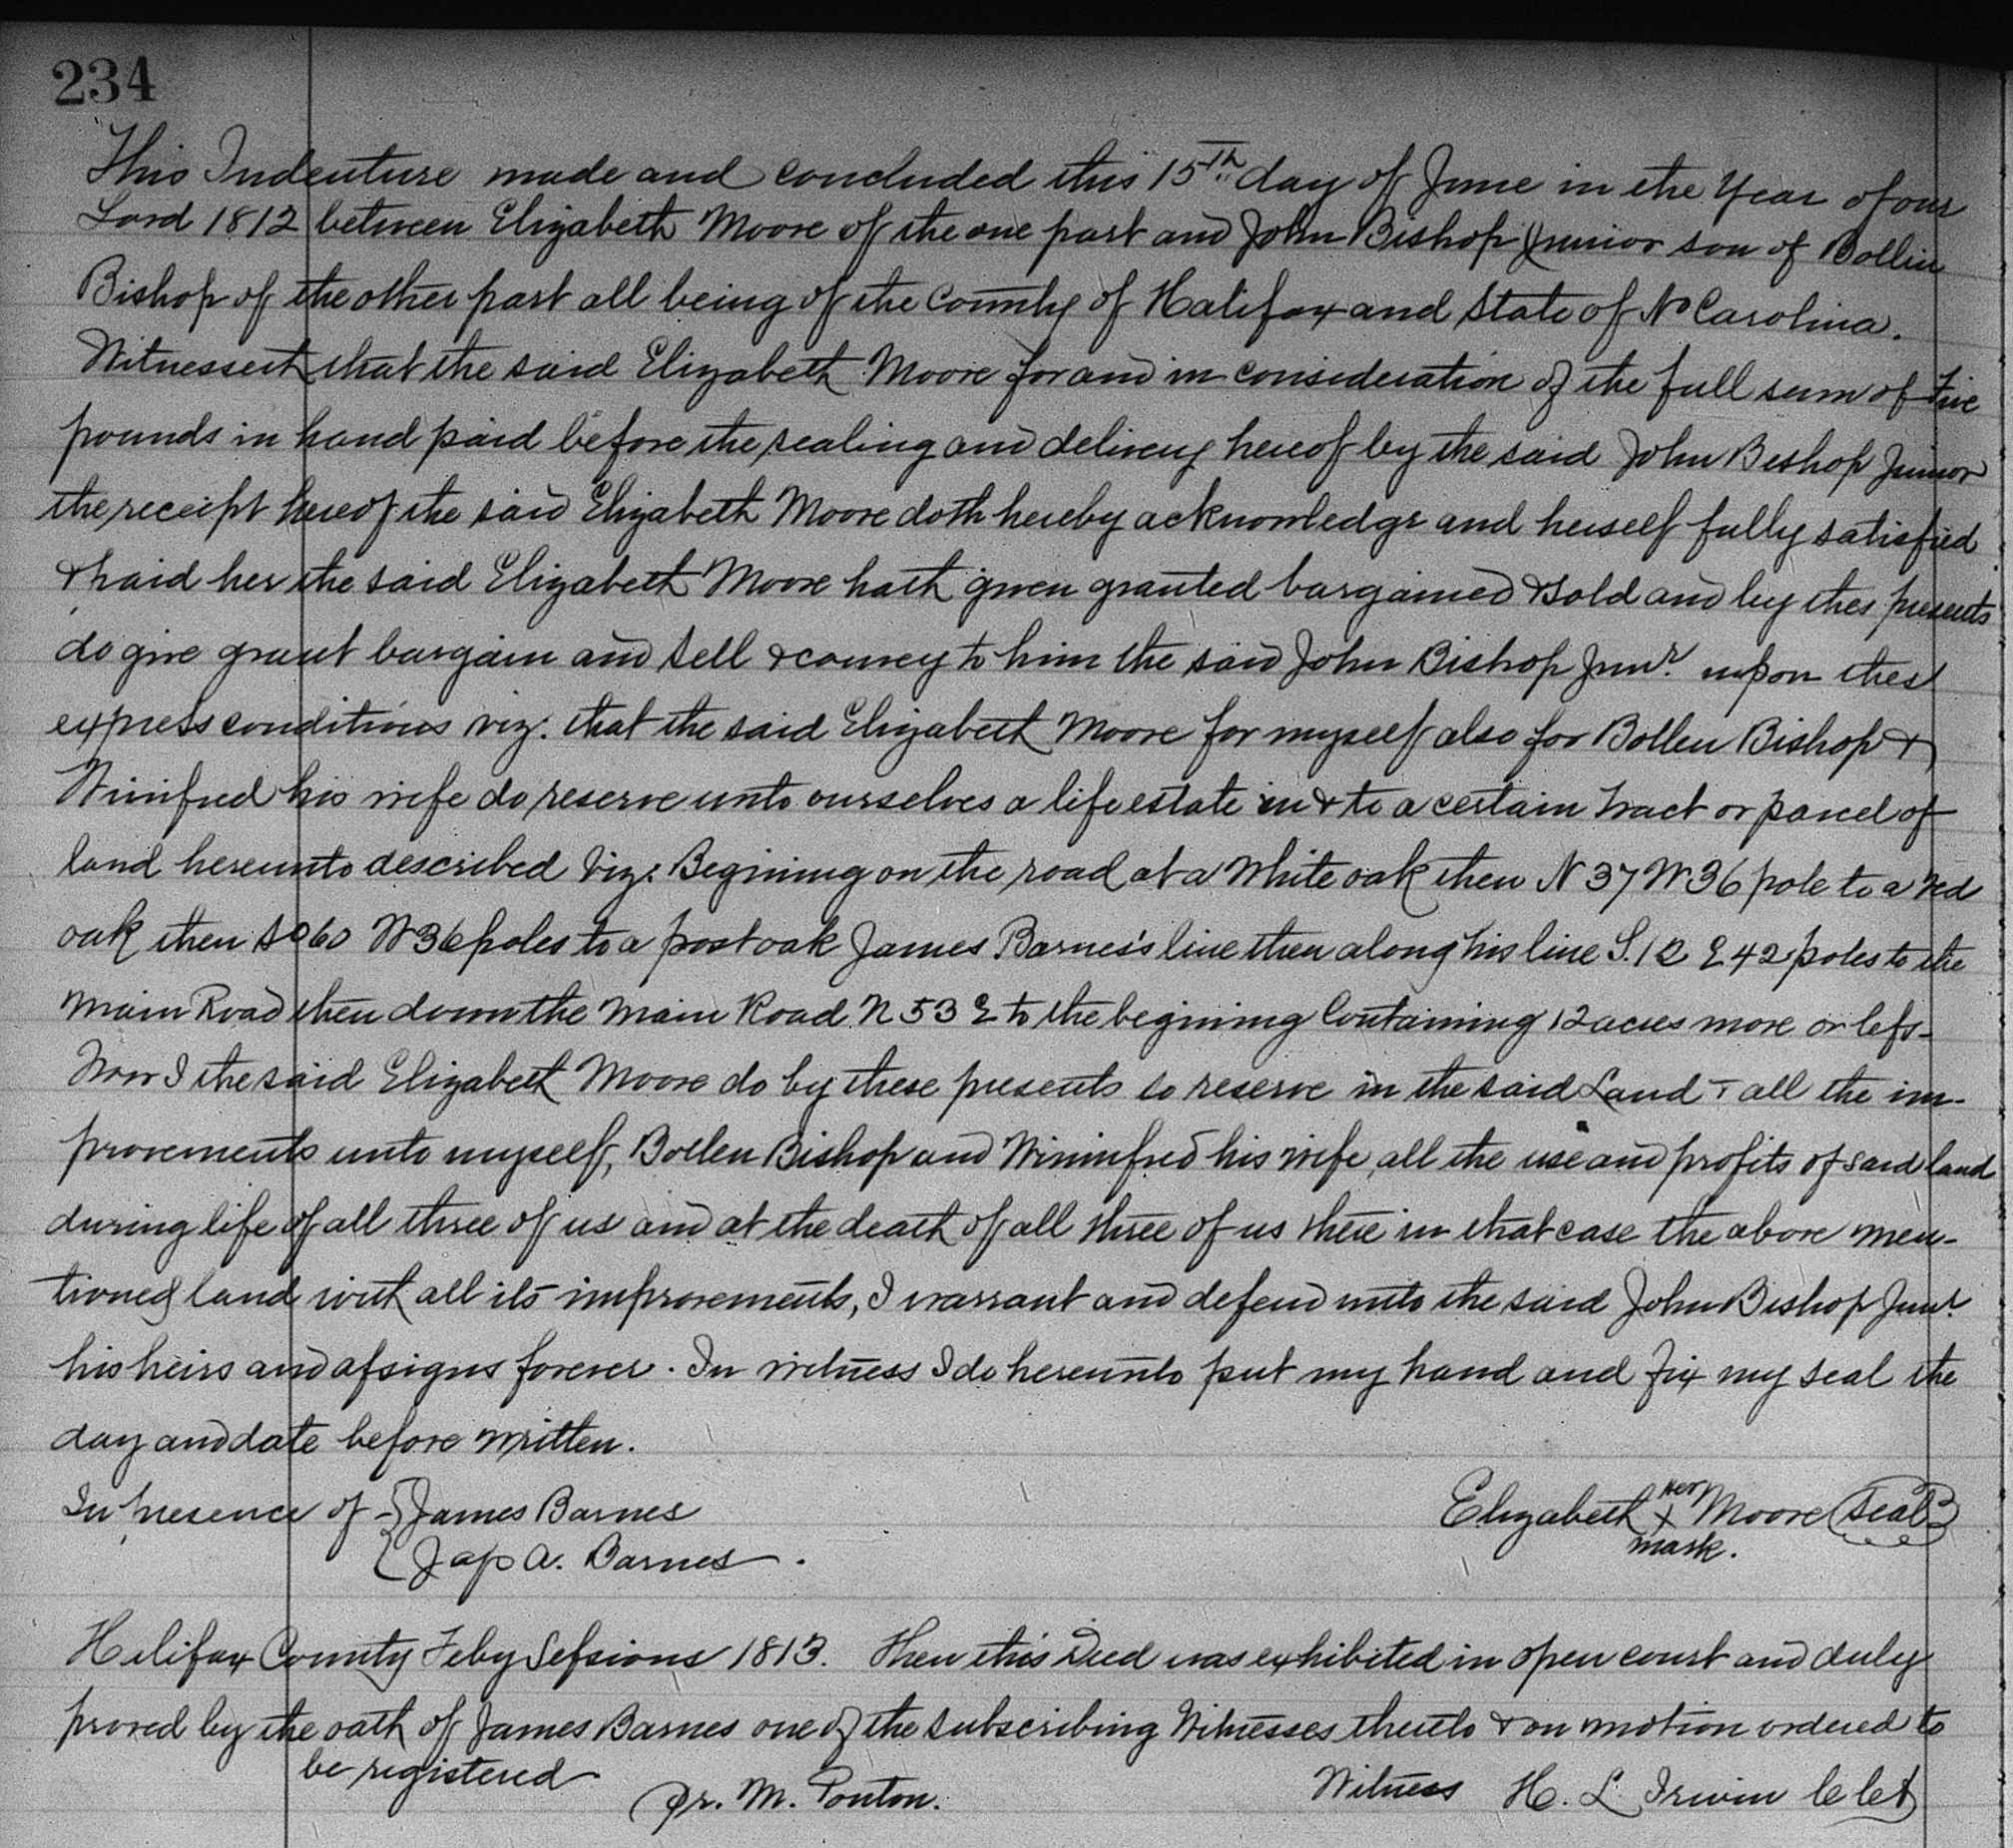 234
This Indenture made and concluded this 15th day of June in the Year of our
Lord 1812 between Elizabeth Moore of the one part and John Bishop Junior son of Bollin
Bishop of the other part all being of the County of Halifax and State of No Carolina.
Witnesseth that the said Elizabeth Moore for and in consideration of the full sum of Five
pounds in hand paid before the sealing and delivery hereof by the said John Bishop Junior
the receipt hereof the said Elizabeth Moore doth hereby acknowledge and herself fully satisfied
& paid her the said Elizabeth Moore hath given granted bargained & sold and by thes presents
do give grant bargain and sell & convey to him the said John Bishop Junr. upon thes
express conditions viz: that the said Elizabeth Moore for myself also for Bollen Bishop &
Winifred his wife do reserve unto ourselves a life estate in & to a certain tract or parcel of
land hereunto described Viz: Begining on the road at a White oak then N 37 W 36 pole to a red
oak then So 60 W 36 poles to a post oak James Barnes's line then along his line S. 12 E 42 poles to the
Main Road then down the Main Road N 53 E to the begining Containing 12 acres more or less-
Now I the said Elizabeth Moore do by these presents so reserve in the said Land & all the im-
provements unto myself, Bollen Bishop and Wininfred his wife, all the use and profits of said land
during life of all three of us and at the death of all three of us there in that case the above men-
tioned land with all its improvements, I warrant and defend unto the said John Bishop Junr.
his heirs and assigns forever. In witness I do hereunto put my hand and fix my seal the
day and date before written.
In presence of - { James Barnes
{ Jas A. Barnes.
Elizabeth her X mark. Moore (Seal)
Halifax County Feby Sessions 1813. Then this Deed was exhibited in open court and duly
proved by the oath of James Barnes one of the subscribing Witnesses thereto & on motion ordered to
be registered
Pr. M. Ponton.
Witness H. L. Irwin